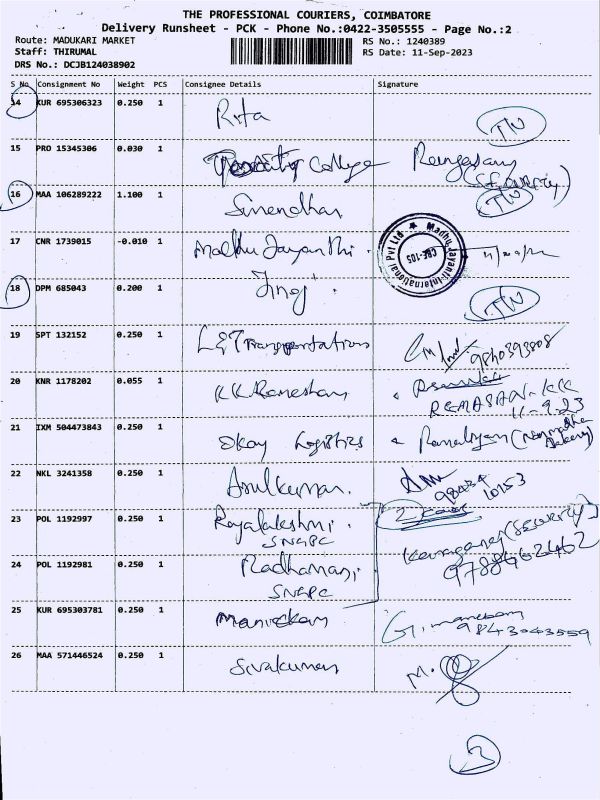 THE PROFESSIONAL COURIERS, COIMBATORE
Delivery Runsheet - PCK - Phone No.:0422-3505555 - Page No.:2
Route: MADUKARI MARKET
Staff: THIRUMAL
DRS No.: DCJB124038902
RS No.: 1240389
RS Date: 11-Sep-2023
S No. Consignment No Weight PCS Consignee Details Signature
14 KUR 695306323 0.250 1 Rita
15 PRO 15345306 0.030 1 College
16 MAA 106289222 1.100 1
17 CNR 1739015 -0.010 1 Madhu Jayanthi
Madhu Jayanti International Pvt Ltd
CBE-105
18 DPM 685043 0.200 1
19 SPT 132152 0.250 1 L&T Transportations 9840393808
20 KNR 1178202 0.055 1 KK Rameshan
REMASAN-KK
11-9-23
21 IXM 504473843 0.250 1 Okay Logistics
22 NKL 3241358 0.250 1 Arulkumar
98434
10153
23 POL 1192997 0.250 1 Rajalakshmi
SNGPC
24 POL 1192981 0.250 1 Radhamani
SNGPC
9788462462
25 KUR 695303781 0.250 1 Manickam
9843043559
26 MAA 571446524 0.250 1 Sivakumar M.
3